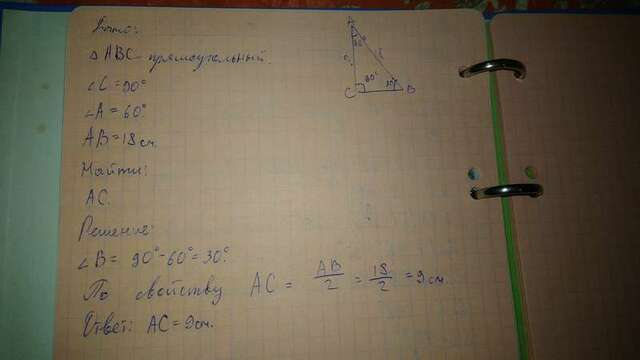 Дано:
△ABC прямоугольный.
∠C = 90°
∠A = 60°
AB = 18 см.
Найти:
AC.
Решение:
∠B = 90° - 60° = 30°.
По свойству AC = AB/2 = 18/2 = 9 см
Ответ: AC = 9 см.
A
C
B